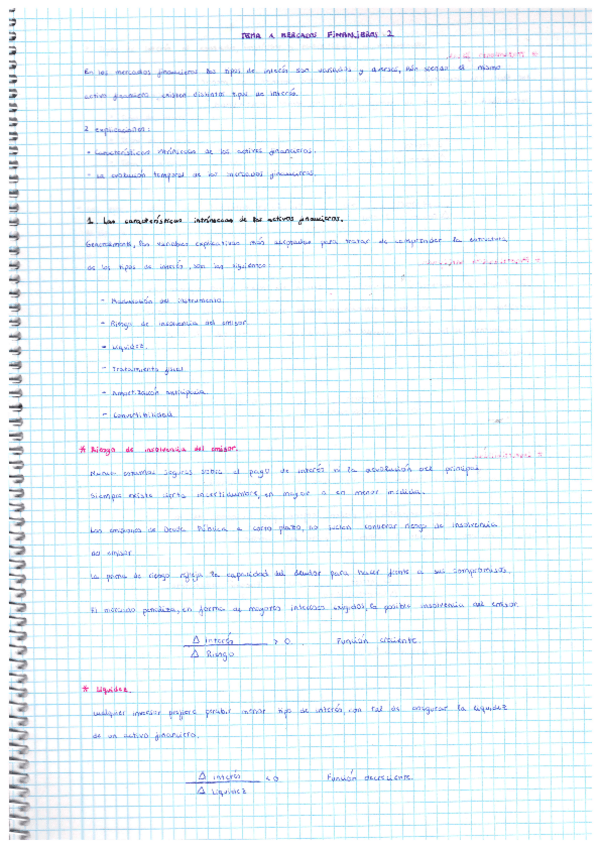 TEMA 1 MERCADOS FINANCIEROS 2
En los mercados financieros los tipos de interés son variables y diversos, aún siendo el mismo
activo financiero, existen distintos tipos de interés.
2 explicaciones:
- Características intrínsecas de los activos financieros.
- La evolución temporal de los mercados financieros.
1. Las características intrínsecas de los activos financieros.
Generalmente, las variables explicativas más aceptadas para tratar de comprender la estructura
de los tipos de interés, son las siguientes:
- del instrumento.
- Riesgo de insolvencia del emisor.
- Liquidez.
- Tratamiento fiscal
- Amortización anticipada
- Convertibilidad
* Riesgo de insolvencia del emisor.
Nunca estamos seguros sobre el pago de interés ni la devolución del principal
Siempre existe cierta incertidumbre, en mayor o en menor medida.
Las emisiones de Deuda Pública a corto plazo, no suelen conllevar riesgo de insolvencia
del emisor
La prima de riesgo refleja la capacidad del deudor para hacer frente a sus compromisos.
El mercado penaliza, en forma de mayores intereses exigidos, la posible insolvencia del emisor.
Δ interés > 0. Función creciente.
Δ Riesgo
* Liquidez.
Cualquier inversor prefiere percibir menor tipo de interés, con tal de asegurar la liquidez
de un activo financiero.
Δ interés < 0 Función decreciente.
Δ Liquidez